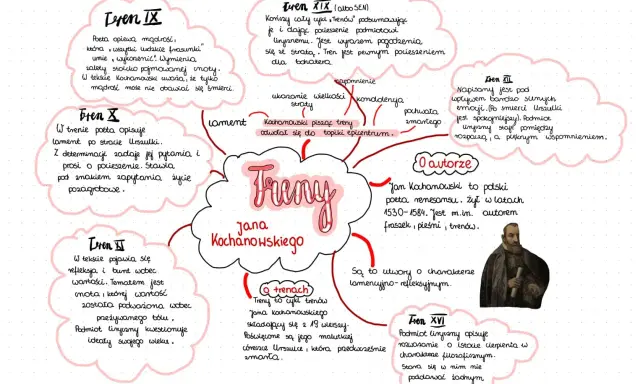 Tren IX
Poeta opiewa mądrość,
która „wszytki ludzkie frasunki”
umie „wykorzenić”. Wymienia
zalety stoicko pojmowanej cnoty.
W tekście Kochanowski uważa, że tylko
mądrość może nie obawiać się śmierci.
Tren XIX (albo SEN)
Kończy cały cykl „Trenów” podsumowując
je i dając pocieszenie podmiotowi
lirycznemu. Jest wyrazem pogodzenia
się ze stratą. Tren jest pewnym pocieszeniem
dla bohatera.
Tren VII
Napisany jest pod
wpływem bardzo silnych
emocji. (Po śmierci Urszulki
jest spokojniejszy). Podmiot
liryczny staje pomiędzy
rozpaczą, a pięknym wspomnieniem.
Tren X
W trenie poeta opisuje
lament po stracie Urszulki.
Z determinacją zadaje jej pytania i
prosi o pocieszenie. Stawia
pod znakiem zapytania, życie
pozagrobowe.
lament
ukazanie wielkości
straty
napomnienie
kondolencja
pochwała
zmarłego
Kochanowski pisząc treny
odwołał się do topiki epicentrum.
Treny
Jana
Kochanowskiego
O autorze
Jan Kochanowski to polski
poeta renesansu. Żył w latach
1530-1584. Jest m.in. autorem
fraszek, pieśni, trenów.
Są to utwory o charakterze
lamencyjno-refleksyjnym.
o trenach
Treny to cykl trenów
Jana Kochanowskiego
składający się z 19 wierszy.
Poświęcone są jego malutkiej
córeczce Urszulce, która przedwcześnie
zmarła.
Tren XI
W tekście pojawia się
refleksja i bunt wobec
wartości. Tematem jest
cnota, której wartość
została podważona wobec
przeżywanego bólu.
Podmiot liryczny kwestionuje
ideały swojego wieku.
Tren XVI
Podmiot liryczny opisuje
rozważanie o istocie cierpienia w
charakterze filozoficznym.
Stara się w nim nie
poddawać żadnym